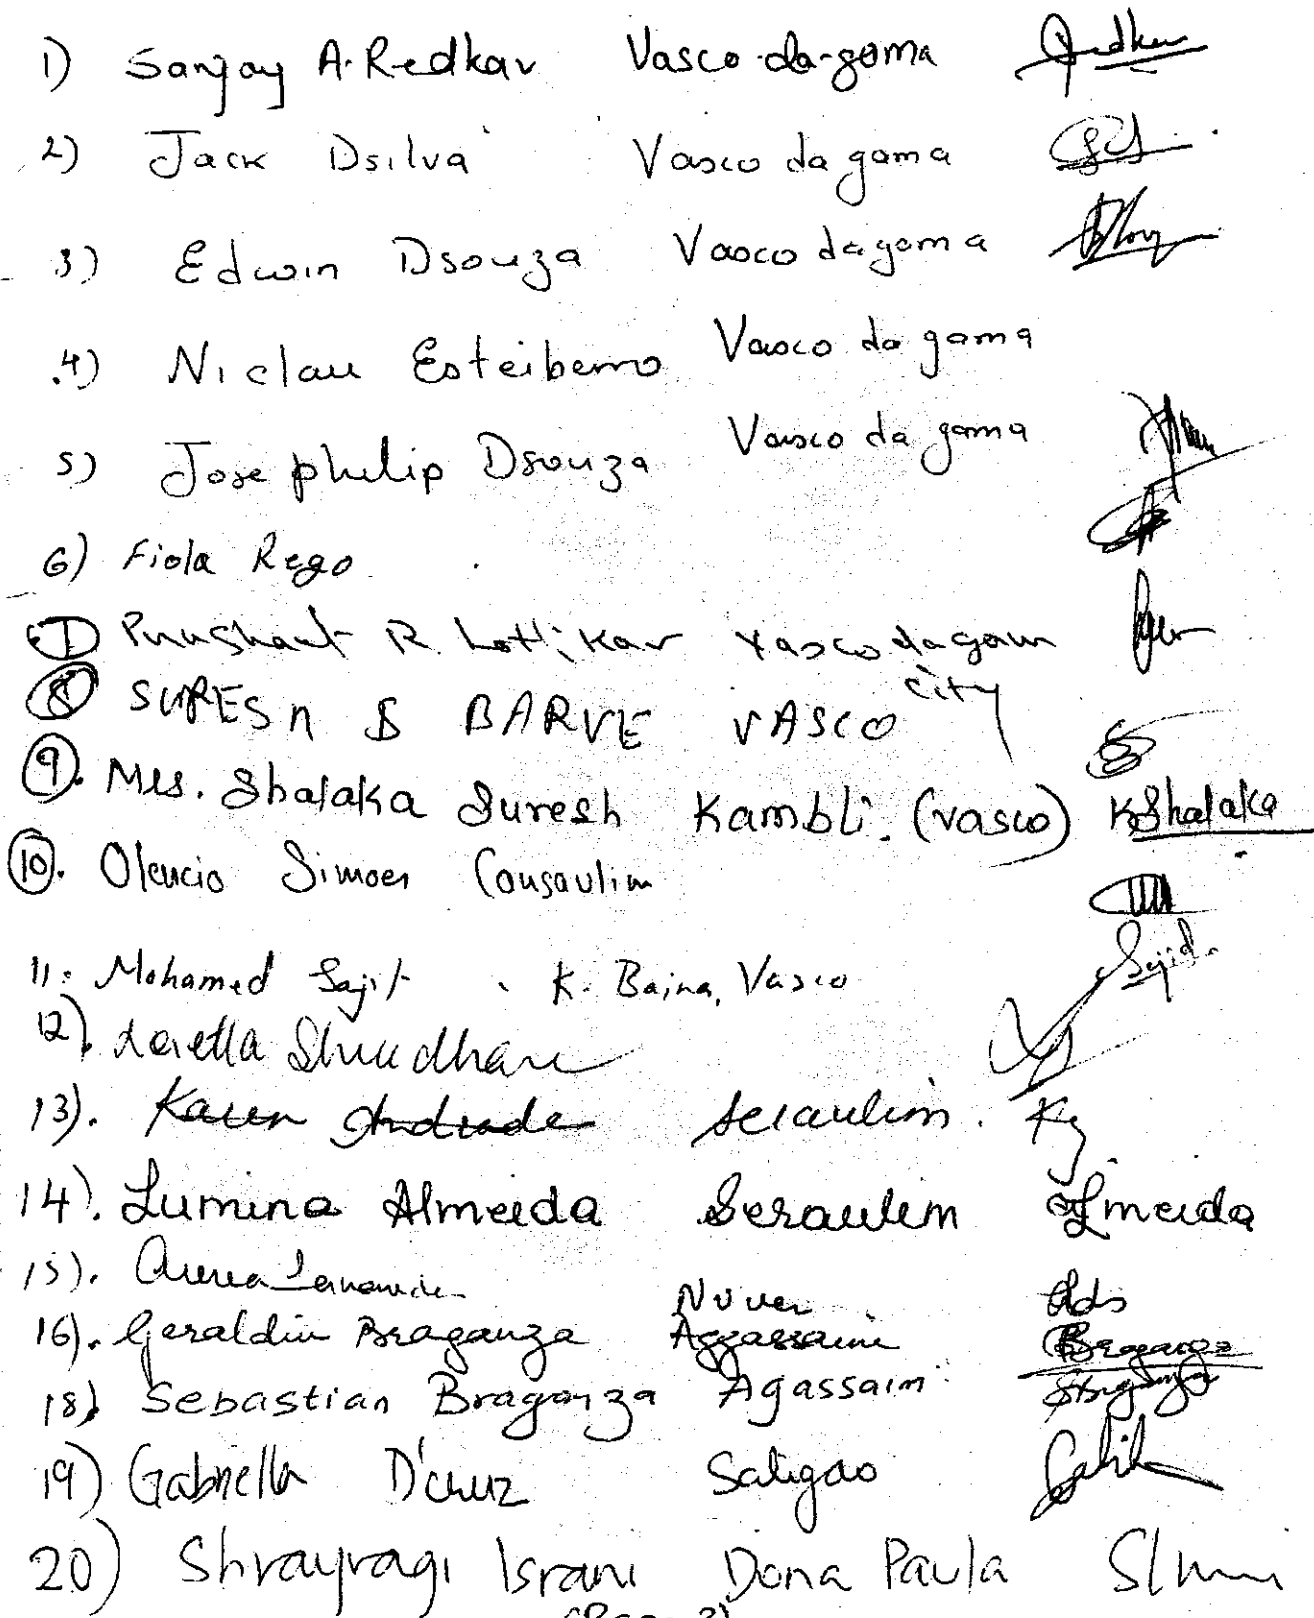 1) Sanjay A. Redkar Vasco-da-gama Redkar
2) Jack Dsilva Vasco da gama
3) Edwin Dsouza Vasco dagama
4) Niclau Esteibemo Vasco da gama
5) Jose philip Dsouza Vasco da gama
6) Fiola Rego
7 Prashant R Lotlikar Vascodagam
8 SURESH S BARVE VASCO city
9. Mrs. Shalaka Suresh Kambli. (vasco) KShalaka
10. Olencio Simoes Cansaulim
11. Mohamed Sajit K. Baina, Vasco Sajid
12). Loretta
13). Karen Andrade Seraulim.
14). Lumina Almeida Seraulim Almeida
15). Nuvem
16). Geraldin Braganza Aggassaim Braganza
18) Sebastian Braganza Agassaim Braganza
19) Gabriella D'cruz Saligao
20) Shrayragi Israni Dona Paula
(Page 2)